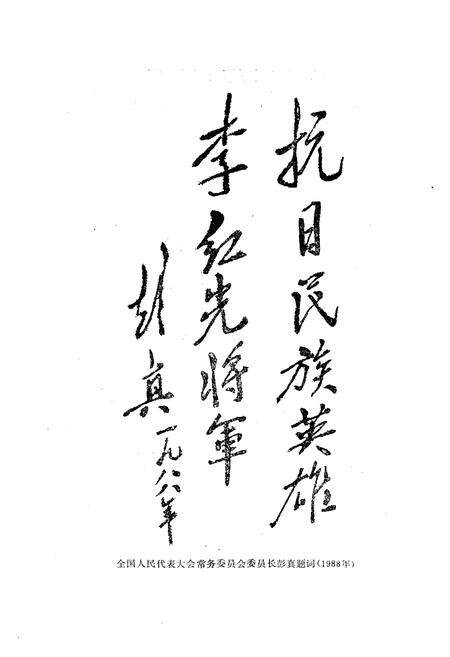 抗日民族英雄
李红光将軍
彭真一九八八年
全国人民代表大会常务委员会委员长彭真题词(1988年)